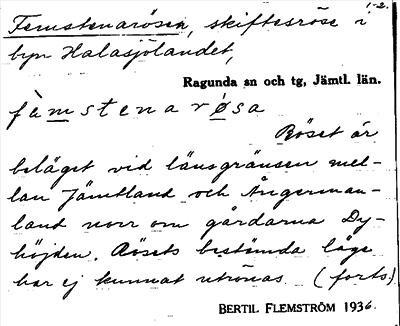 1-2.
Femstenarösen, skiftesröse i
byn Halasjölandet,
Ragunda sn och tg, Jämtl. län.
fèmstenarøsa
Röset är
beläget vid länsgränsen mel-
lan Jämtland och Ångerman-
land norr om gårdarna Dy-
höjden. Rösets bestämda läge
har ej kunnat utrönas. (forts.)
BERTIL FLEMSTRÖM 1936.